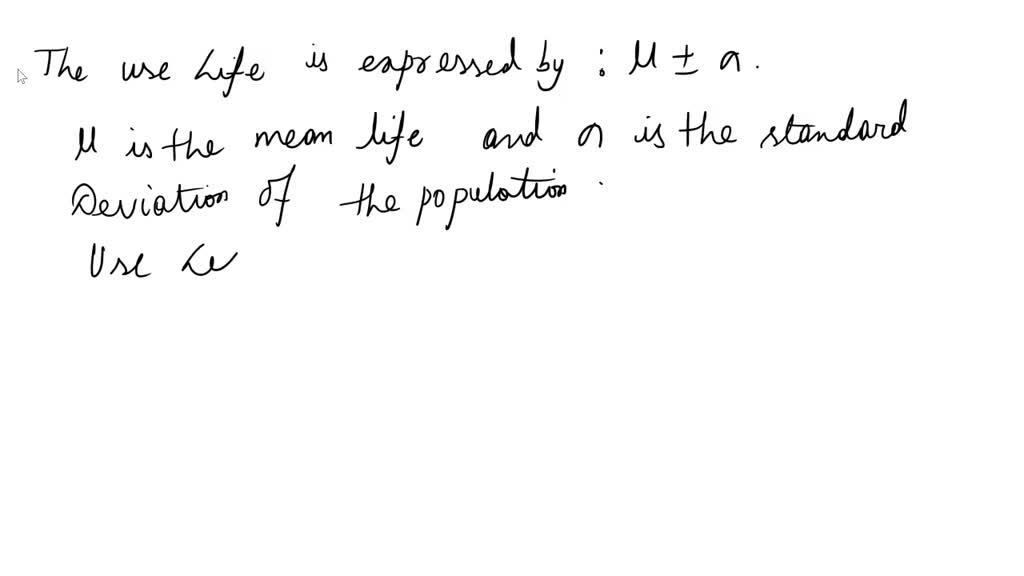 The use Life is expressed by : μ ± σ.
μ is the mean life and σ is the standard
Deviation of the population.
Use Le